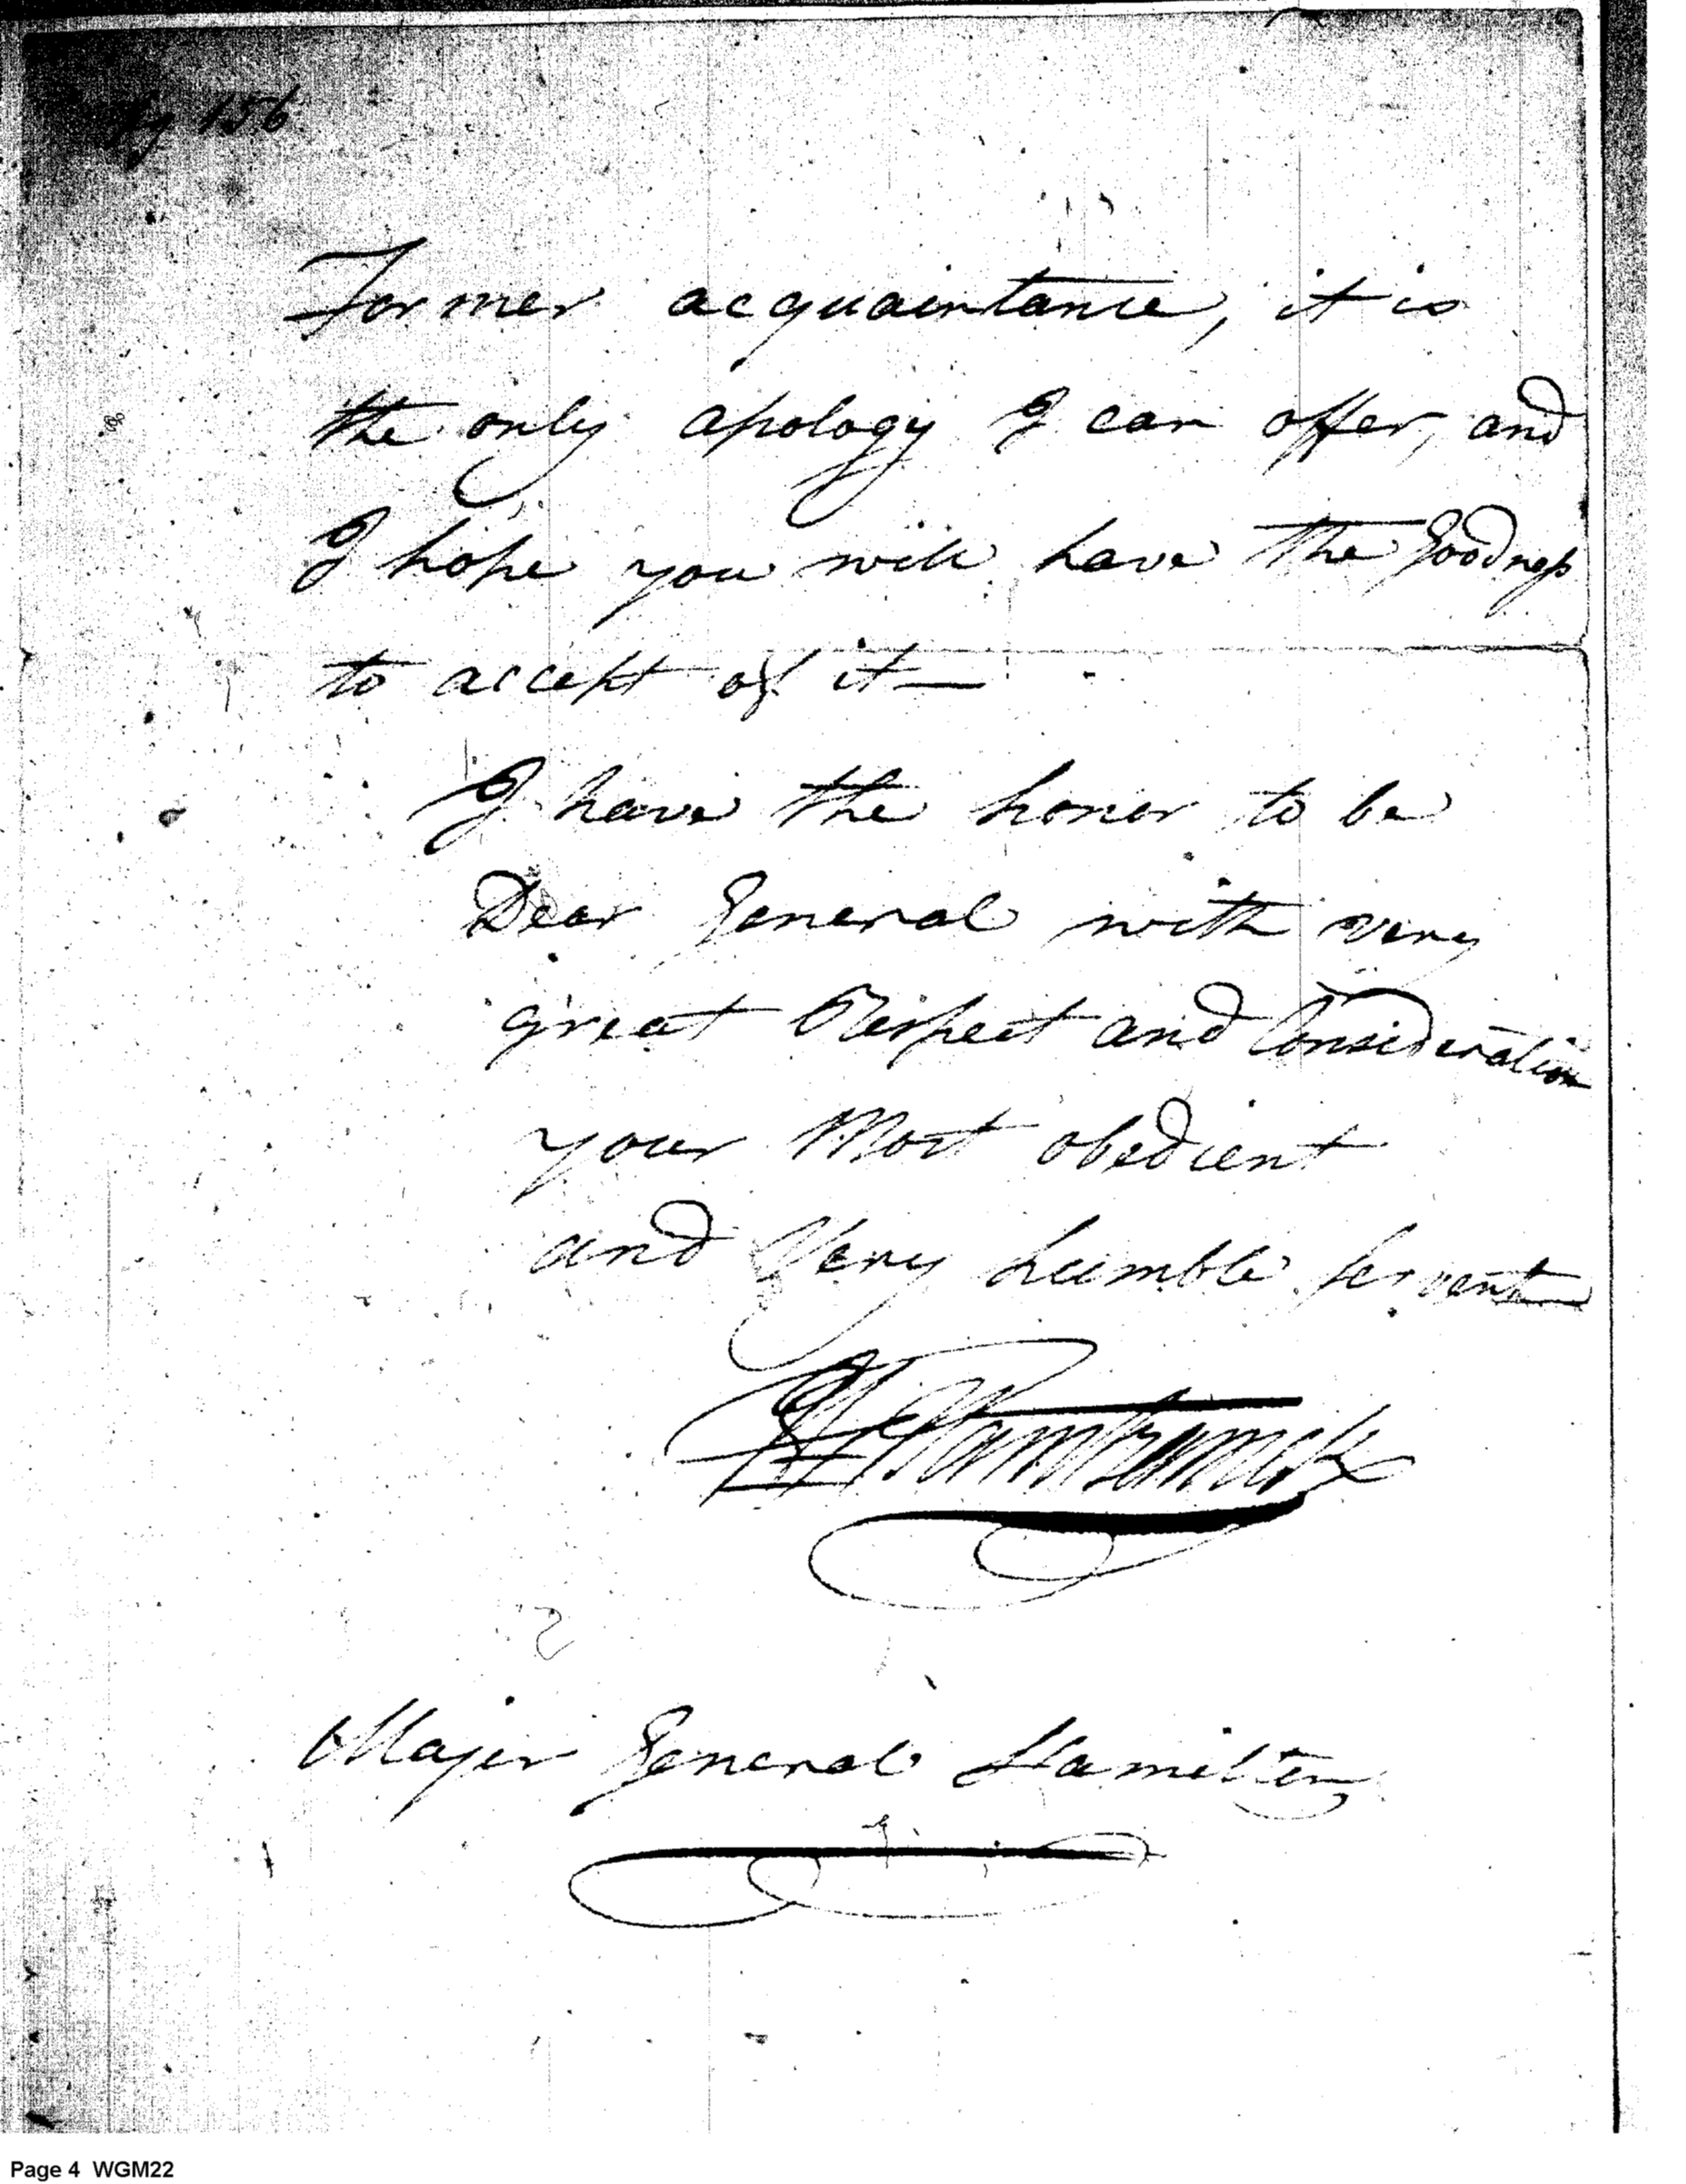 156
Former acquaintance, it is
the only apology I can offer, and
I hope you will have the Goodness
to accept of it—
I have the honor to be
Dear General with very
great Respect and Consideration
your Most obedient
and Very humble Servant
JF Hamtramck
Major General Hamilton
Page 4 WGM22